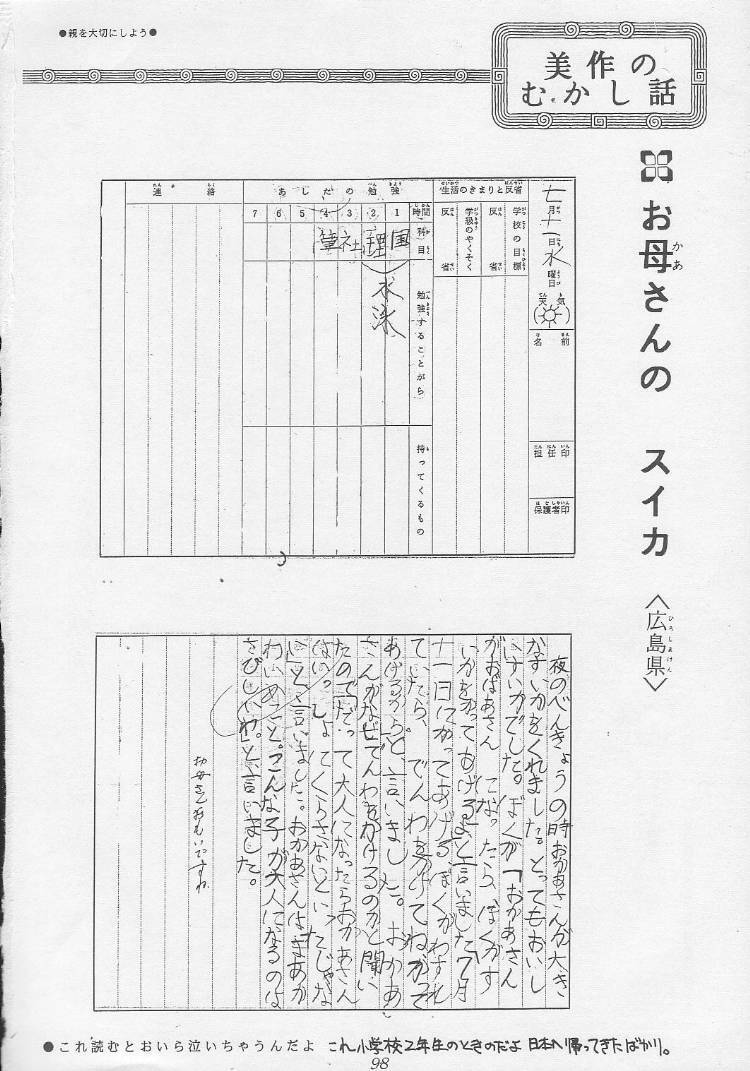 ●親を大切にしよう●
美作の
むかし話
お母さんの スイカ
かあ
〈広島県〉
ひろしまけん
七月十一日水曜日
天気
名前
担任印
保護者印
生活のきまりと反省
学校の目標
反省
学級のやくそく
反省
あしたの勉強
時間 1 2 3 4 5 6 7
科目 国 理 社 筆
勉強することがら
水泳
持ってくるもの
連絡
夜のべんきょうの時おかあさんが大き
なすいかをくれました。とってもおいし
いすいかでした。ぼくが「おかあさん
がおばあさんになったら、ぼくがす
いかをかってあげるよ」と言いました7月
十一日にかってあげるぼくがわすれ
ていたら、でんわをかけてね。かって
あげるから」と、言いました。おかあ
さんがなぜでんわをかけるのかと聞い
たので「だって大人になったらおかあさん
はいっしょにくらさないといったじゃな
い」と言いました。おかあさんは「まあか
わいいこと。こんな子が大人になるのは
さびしいわ。」と、言いました。
お母さんおもいですね
●これ読むとおいら泣いちゃうんだよ これ小学校2年生のときのだよ 日本へ帰ってきたばかり。
98